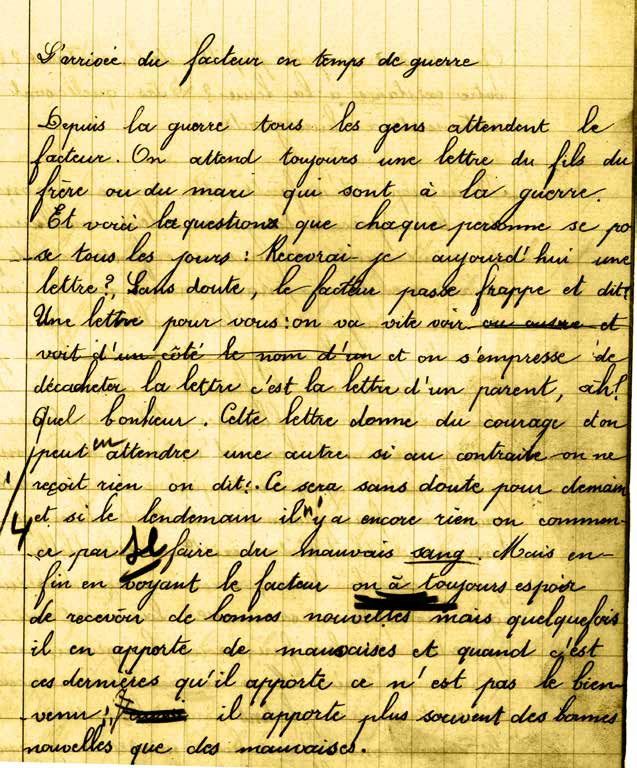 L'arrivée du facteur en temps de guerre
Depuis la guerre tous les gens attendent le
facteur. On attend toujours une lettre du fils du
frère ou du mari qui sont à la guerre.
Et voici la question que chaque personne se po
se tous les jours : Recevrai-je aujourd'hui une
lettre ? Sans doute, le facteur passe frappe et dit :
Une lettre pour vous : on va vite voir et
voit d'un côté le nom d'un et on s'empresse de
décacheter la lettre c'est la lettre d'un parent, ah !
Quel bonheur. Cette lettre donne du courage et on
peut en attendre une autre si au contraire on ne
reçoit rien on dit : Ce sera sans doute pour demain
1/4 et si le lendemain il n'y a encore rien on commen-
ce par se faire du mauvais sang. Mais en-
fin en voyant le facteur on à toujours espoir
de recevoir de bonnes nouvelles mais quelquefois
il en apporte de mauvaises et quand c'est
ces dernières qu'il apporte ce n'est pas le bien-
venu ; il apporte plus souvent des bonnes
nouvelles que des mauvaises.